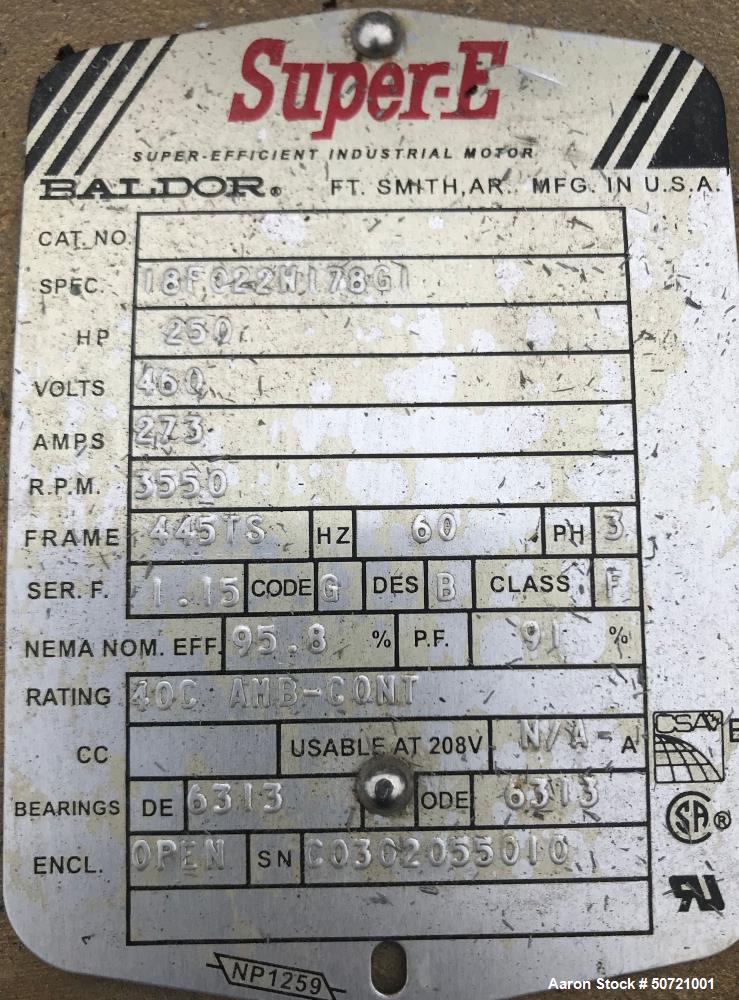 Super-E
SUPER-EFFICIENT INDUSTRIAL MOTOR
BALDOR® FT. SMITH, AR. MFG. IN U.S.A.
CAT. NO.
SPEC. 18F022W178G1
HP 250
VOLTS 460
AMPS 273
R.P.M. 3550
FRAME 445TS HZ 60 PH 3
SER. F. 1.15 CODE G DES B CLASS F
NEMA NOM. EFF. 95.8 % P.F. 91 %
RATING 40C AMB-CONT
CC USABLE AT 208V N/A A
BEARINGS DE 6313 ODE 6313
ENCL. OPEN SN C0302055010
CSA E
SA®
NP1259
Aaron Stock # 50721001